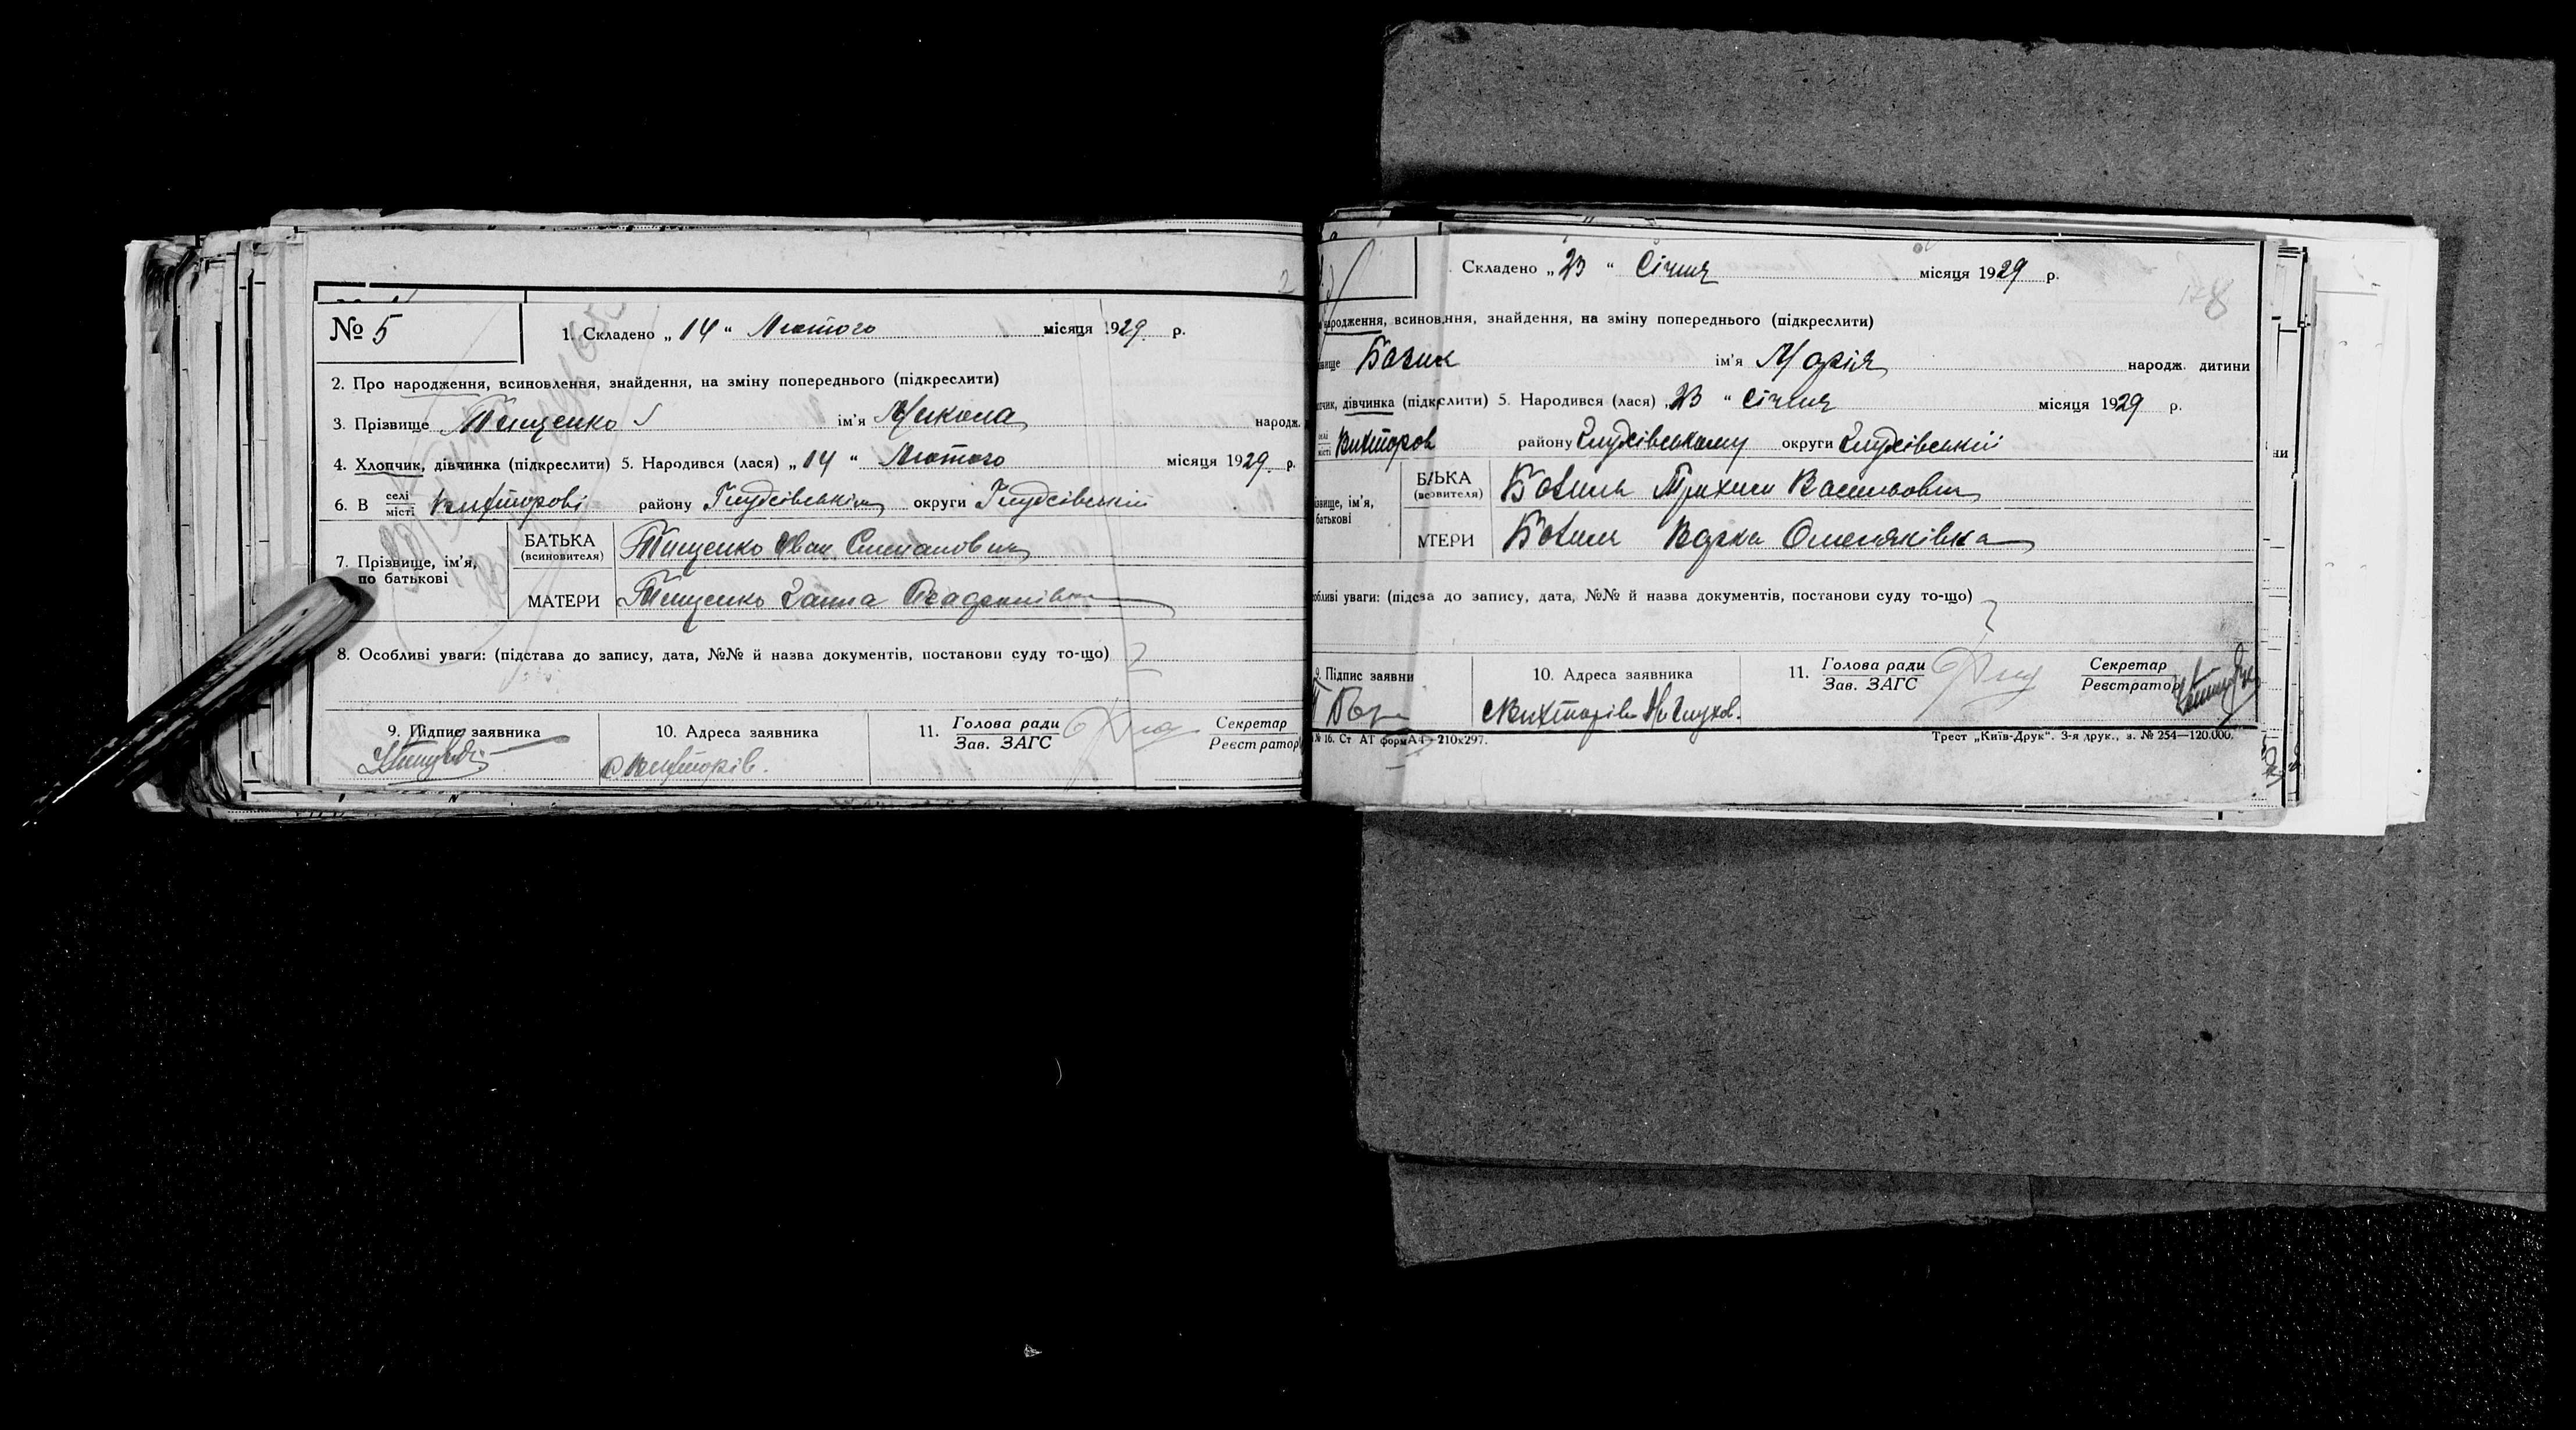 2
№ 5
1. Складено „14" Лютого місяця 1929 р.
2. Про народження, всиновлення, знайдення, на зміну попереднього (підкреслити)
3. Прізвище Тищенко ім'я Микола народж.
4. Хлопчик, дівчинка (підкреслити) 5. Народився (лася) „14" Лютого місяця 1929 р.
6. В селі місті Вихторові району Глухівськім округи Глухівській
7. Прізвище, ім'я, по батькові
БАТЬКА (всиновителя) Тищенко Иван Степанович
МАТЕРИ Тищенко Ганна
8. Особливі уваги: (підстава до запису, дата, №№ й назва документів, постанови суду то-що)
9. Підпис заявника
10. Адреса заявника
с Вихторів.
11. Голова ради Зав. ЗАГС
Секретар Реєстратор
Складено „23" Січня місяця 1929 р.
178
народження, всиновлення, знайдення, на зміну попереднього (підкреслити)
Бовин ім'я Марія народж. дитини
дівчинка (підкреслити) 5. Народився (лася) „23" Січня місяця 1929 р.
селі місті Вихторов району Глухівському округи Глухівській
ім'я, батькові
Василь­ович
МАТЕРИ Варка
уваги: запису, дата, №№ й назва документів, постанови суду то-що)
9. Підпис заявни
10. Адреса заявника
с Вихторів Н-Глухов.
11. Голова ради Зав. ЗАГС
Секретар Реєстратор
№ 16. Ст АТ форм А4—210х297.
Трест „Київ-Друк". 3-я друк., з. № 254—120.000.